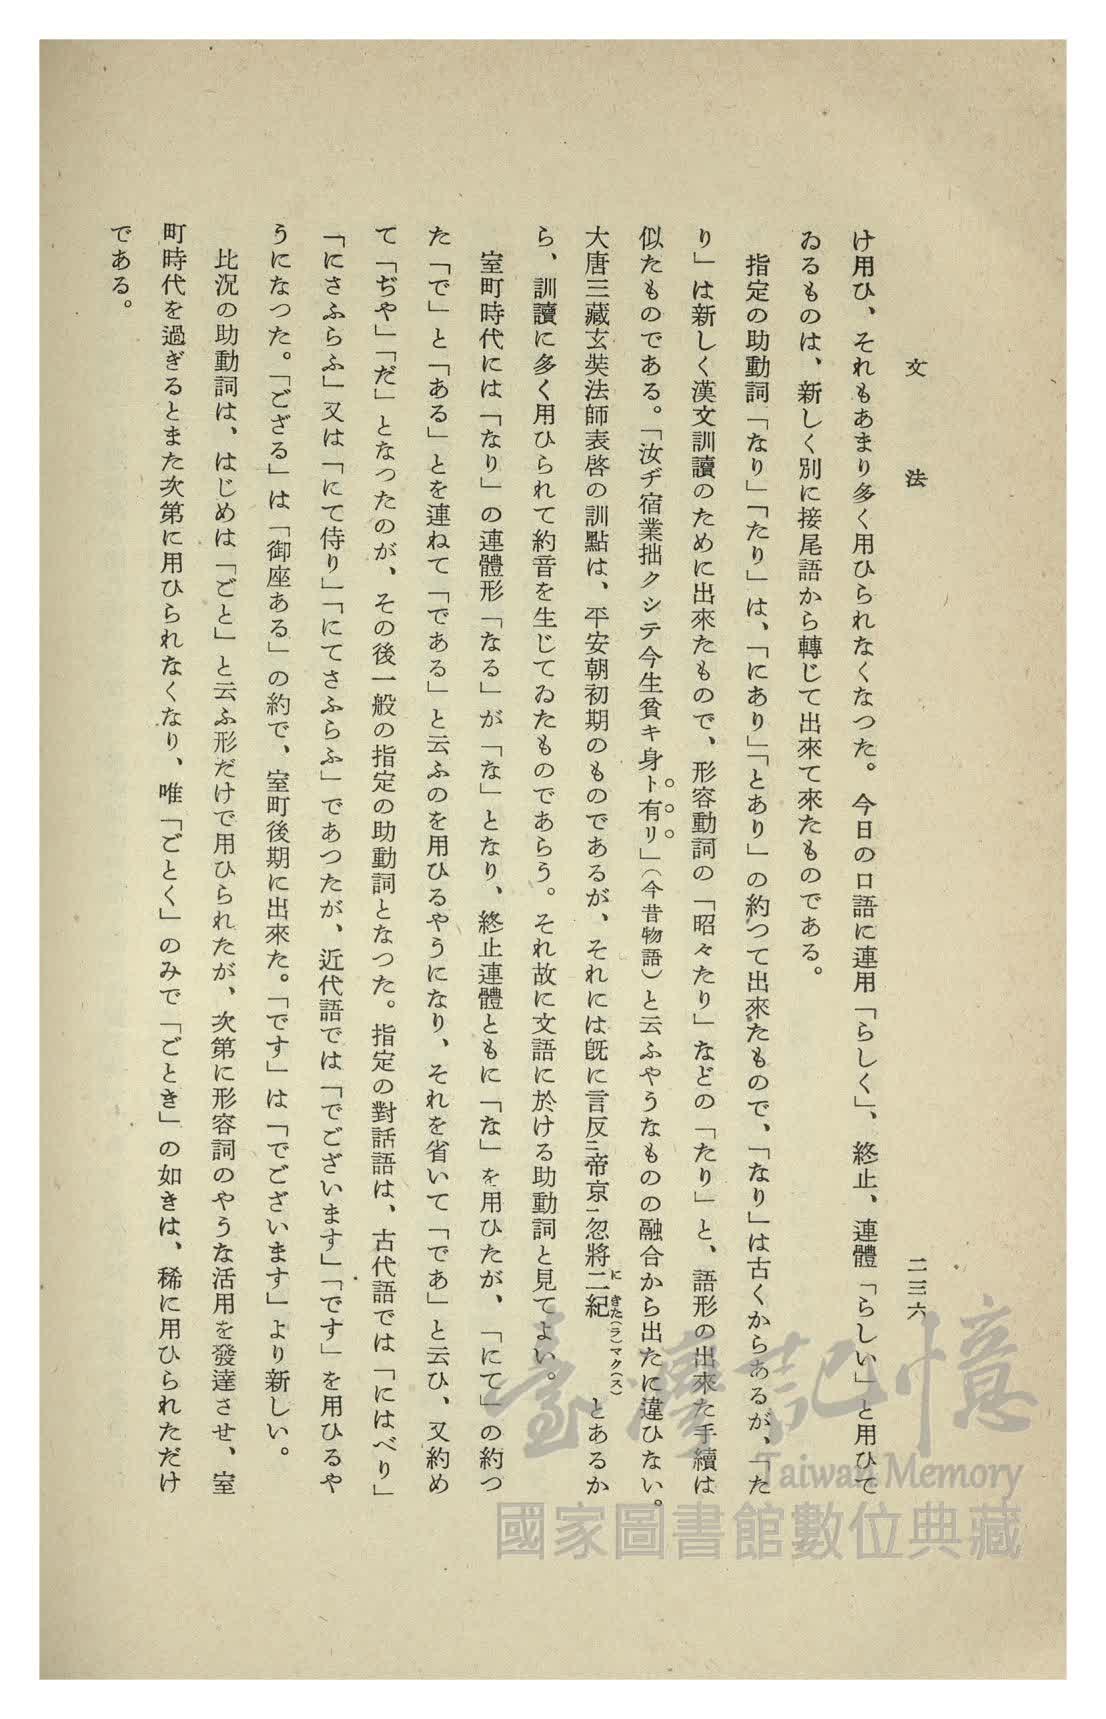 文法
二三六
け用ひ、それもあまり多く用ひられなくなつた。今日の口語に連用「らしく」、終止、連體「らしい」と用ひて
ゐるものは、新しく別に接尾語から轉じて出來て來たものである。
指定の助動詞「なり」「たり」は、「にあり」「とあり」の約つて出來たもので、「なり」は古くからあるが、「た
り」は新しく漢文訓讀のために出來たもので、形容動詞の「昭々たり」などの「たり」と、語形の出來た手續は
似たものである。「汝ヂ宿業拙クシテ今生貧キ身ト有リ」（今昔物語）と云ふやうなものの融合から出たに違ひない。
大唐三藏玄奘法師表啓の訓點は、平安朝初期のものであるが、それには既に言反ニ帝京ニ忽將二紀に きた（ラ）マク（ス）とあるか
ら、訓讀に多く用ひられて約音を生じてゐたものであらう。それ故に文語に於ける助動詞と見てよい。
室町時代には「なり」の連體形「なる」が「な」となり、終止連體ともに「な」を用ひたが、「にて」の約つ
た「で」と「ある」とを連ねて「である」と云ふのを用ひるやうになり、それを省いて「であ」と云ひ、又約め
て「ぢや」「だ」となつたのが、その後一般の指定の助動詞となつた。指定の對話語は、古代語では「にはべり」
「にさふらふ」又は「にて侍り」「にてさふらふ」であつたが、近代語では「でございます」「です」を用ひるや
うになつた。「ござる」は「御座ある」の約で、室町後期に出來た。「です」は「でございます」より新しい。
比況の助動詞は、はじめは「ごと」と云ふ形だけで用ひられたが、次第に形容詞のやうな活用を發達させ、室
町時代を過ぎるとまた次第に用ひられなくなり、唯「ごとく」のみで「ごとき」の如きは、稀に用ひられただけ
である。
臺灣記憶
Taiwan Memory
國家圖書館數位典藏